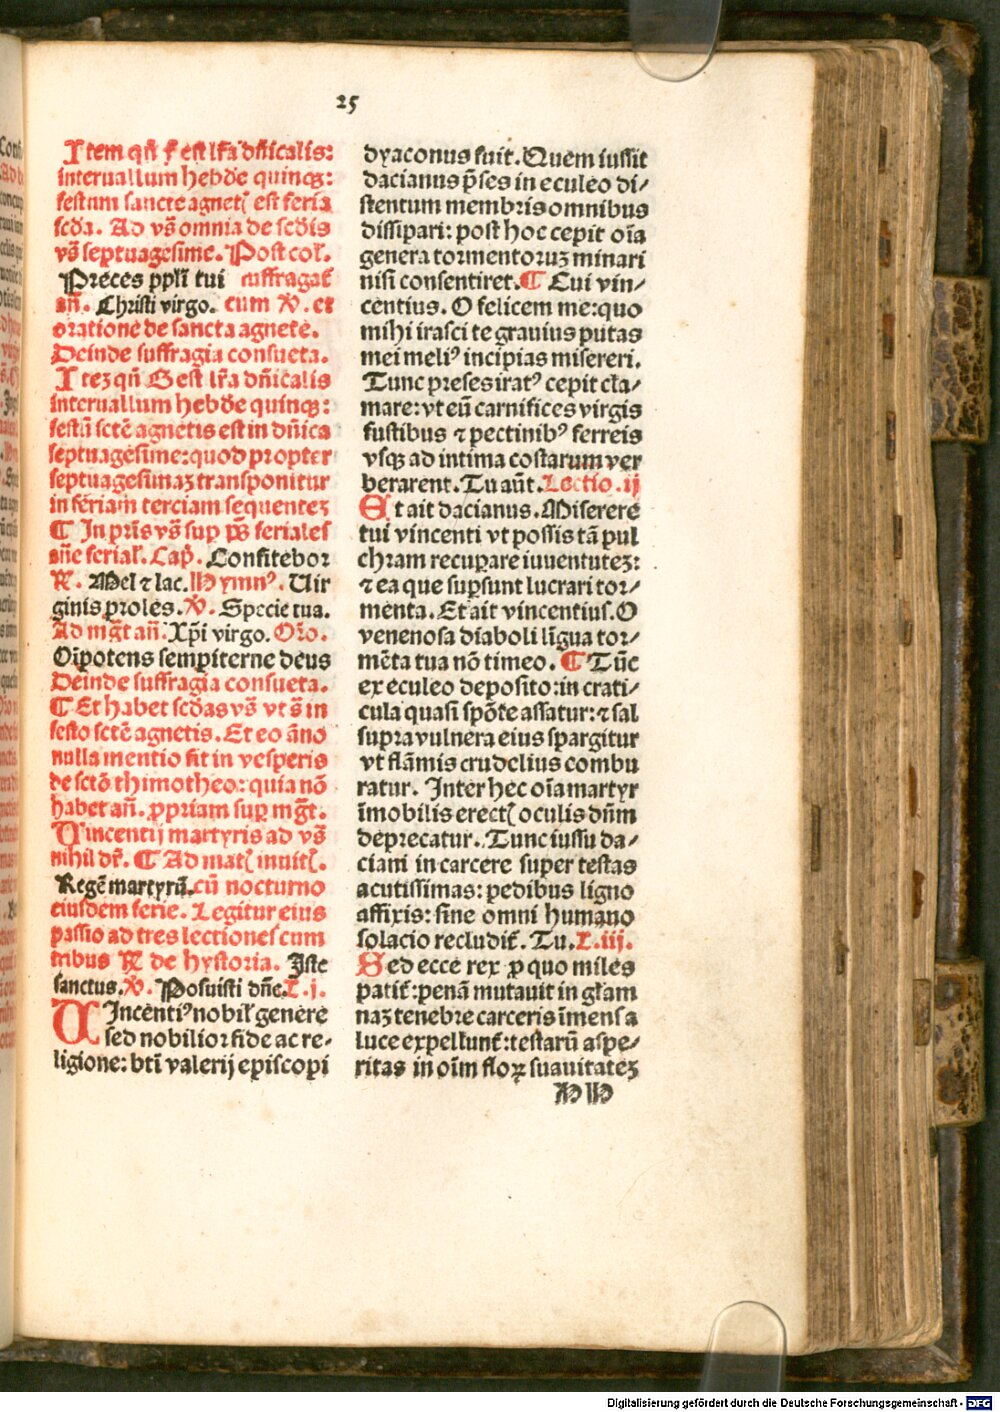 25
Item qñ f est lr̃a dñicalis:
interuallum hebde quinqꝫ:
festum sancte agnetꝭ est feria
scďa. Ad vs̃ omnia de scďis
vs̃ septuagesime. Post col̃.
Preces ppl̃i tui suffragat̃
añ. Christi virgo. cum ℣. et
oratione de sancta agnete.
Deinde suffragia consueta.
Iteꝫ qñ G est lr̃a dñicalis
interuallum hebde quinqꝫ:
festũ sctẽ agnetis est in dñica
septuagesime: quod propter
septuagesimaꝫ transponitur
in feriam terciam sequenteꝫ
¶ In prĩs vs̃ sup p̃s feriales
añe ferial̃. Cap̃. Confitebor
℟. Mel ⁊ lac. Hymnꝰ. Uir
ginis proles. ℣. Specie tua.
Ad mg̃t añ. Xp̃i virgo. Or̃o.
Oĩpotens sempiterne deus
Deinde suffragia consueta.
¶ Et habet scďas vs̃ vt s̃ in
festo sctẽ agnetis. Et eo ãno
nulla mentio fit in vesperis
de sctõ thimotheo: quia nõ
habet añ. ꝓpriam sup mg̃t.
Uincentij martyris ad vs̃
nihil dr̃. ¶ Ad matꝭ inuitꝭ.
Regẽ martyrũ. cũ nocturno
eiusdem ferie. Legitur eius
passio ad tres lectiones cum
tribus ℟ de hystoria. Iste
sanctus. ℣. Posuisti dñe. L. j.
UIncentiꝰ nobil̃ genere
sed nobilior fide ac re-
ligione: btĩ valerij episcopi
dyaconus fuit. Quem iussit
dacianus p̃ses in eculeo di/
stentum membris omnibus
dissipari: post hoc cepit oĩa
genera tormentoruꝫ minari
nisi consentiret. ¶ Cui vin/
centius. O felicem me: quo
mihi irasci te grauius putas
mei meliꝰ incipias misereri.
Tunc preses iratꝰ cepit cla/
mare: vt eũ carnifices virgis
fustibus ⁊ pectinibꝰ ferreis
vsqꝫ ad intima costarum ver
berarent. Tu aũt. Lectio. ij
Et ait dacianus. Miserere
tui vincenti vt possis tã pul
chram recuꝑare iuuentuteꝫ:
⁊ ea que suꝑsunt lucrari tor-
menta. Et ait vincentius. O
venenosa diaboli lĩgua tor-
mẽta tua nõ timeo. ¶ Tũc
ex eculeo deposito: in crati/
cula quasi spõte assatur: ⁊ sal
supra vulnera eius spargitur
vt flãmis crudelius combu
ratur. Inter hec oĩa martyr
ĩmobilis erectꝭ oculis dñm
deprecatur. Tunc iussu da/
ciani in carcere super testas
acutissimas: pedibus ligno
affixis: sine omni humano
solacio recludit̃. Tu. L. iij.
Sed ecce rex ꝓ quo miles
patit̃: penã mutauit in gl̃am
naꝫ tenebre carceris ĩmensa
luce expellunt̃: testarũ aspe-
ritas in oĩm floꝝ suauitateꝫ
HH
Digitalisierung gefördert durch die Deutsche Forschungsgemeinschaft - DFG